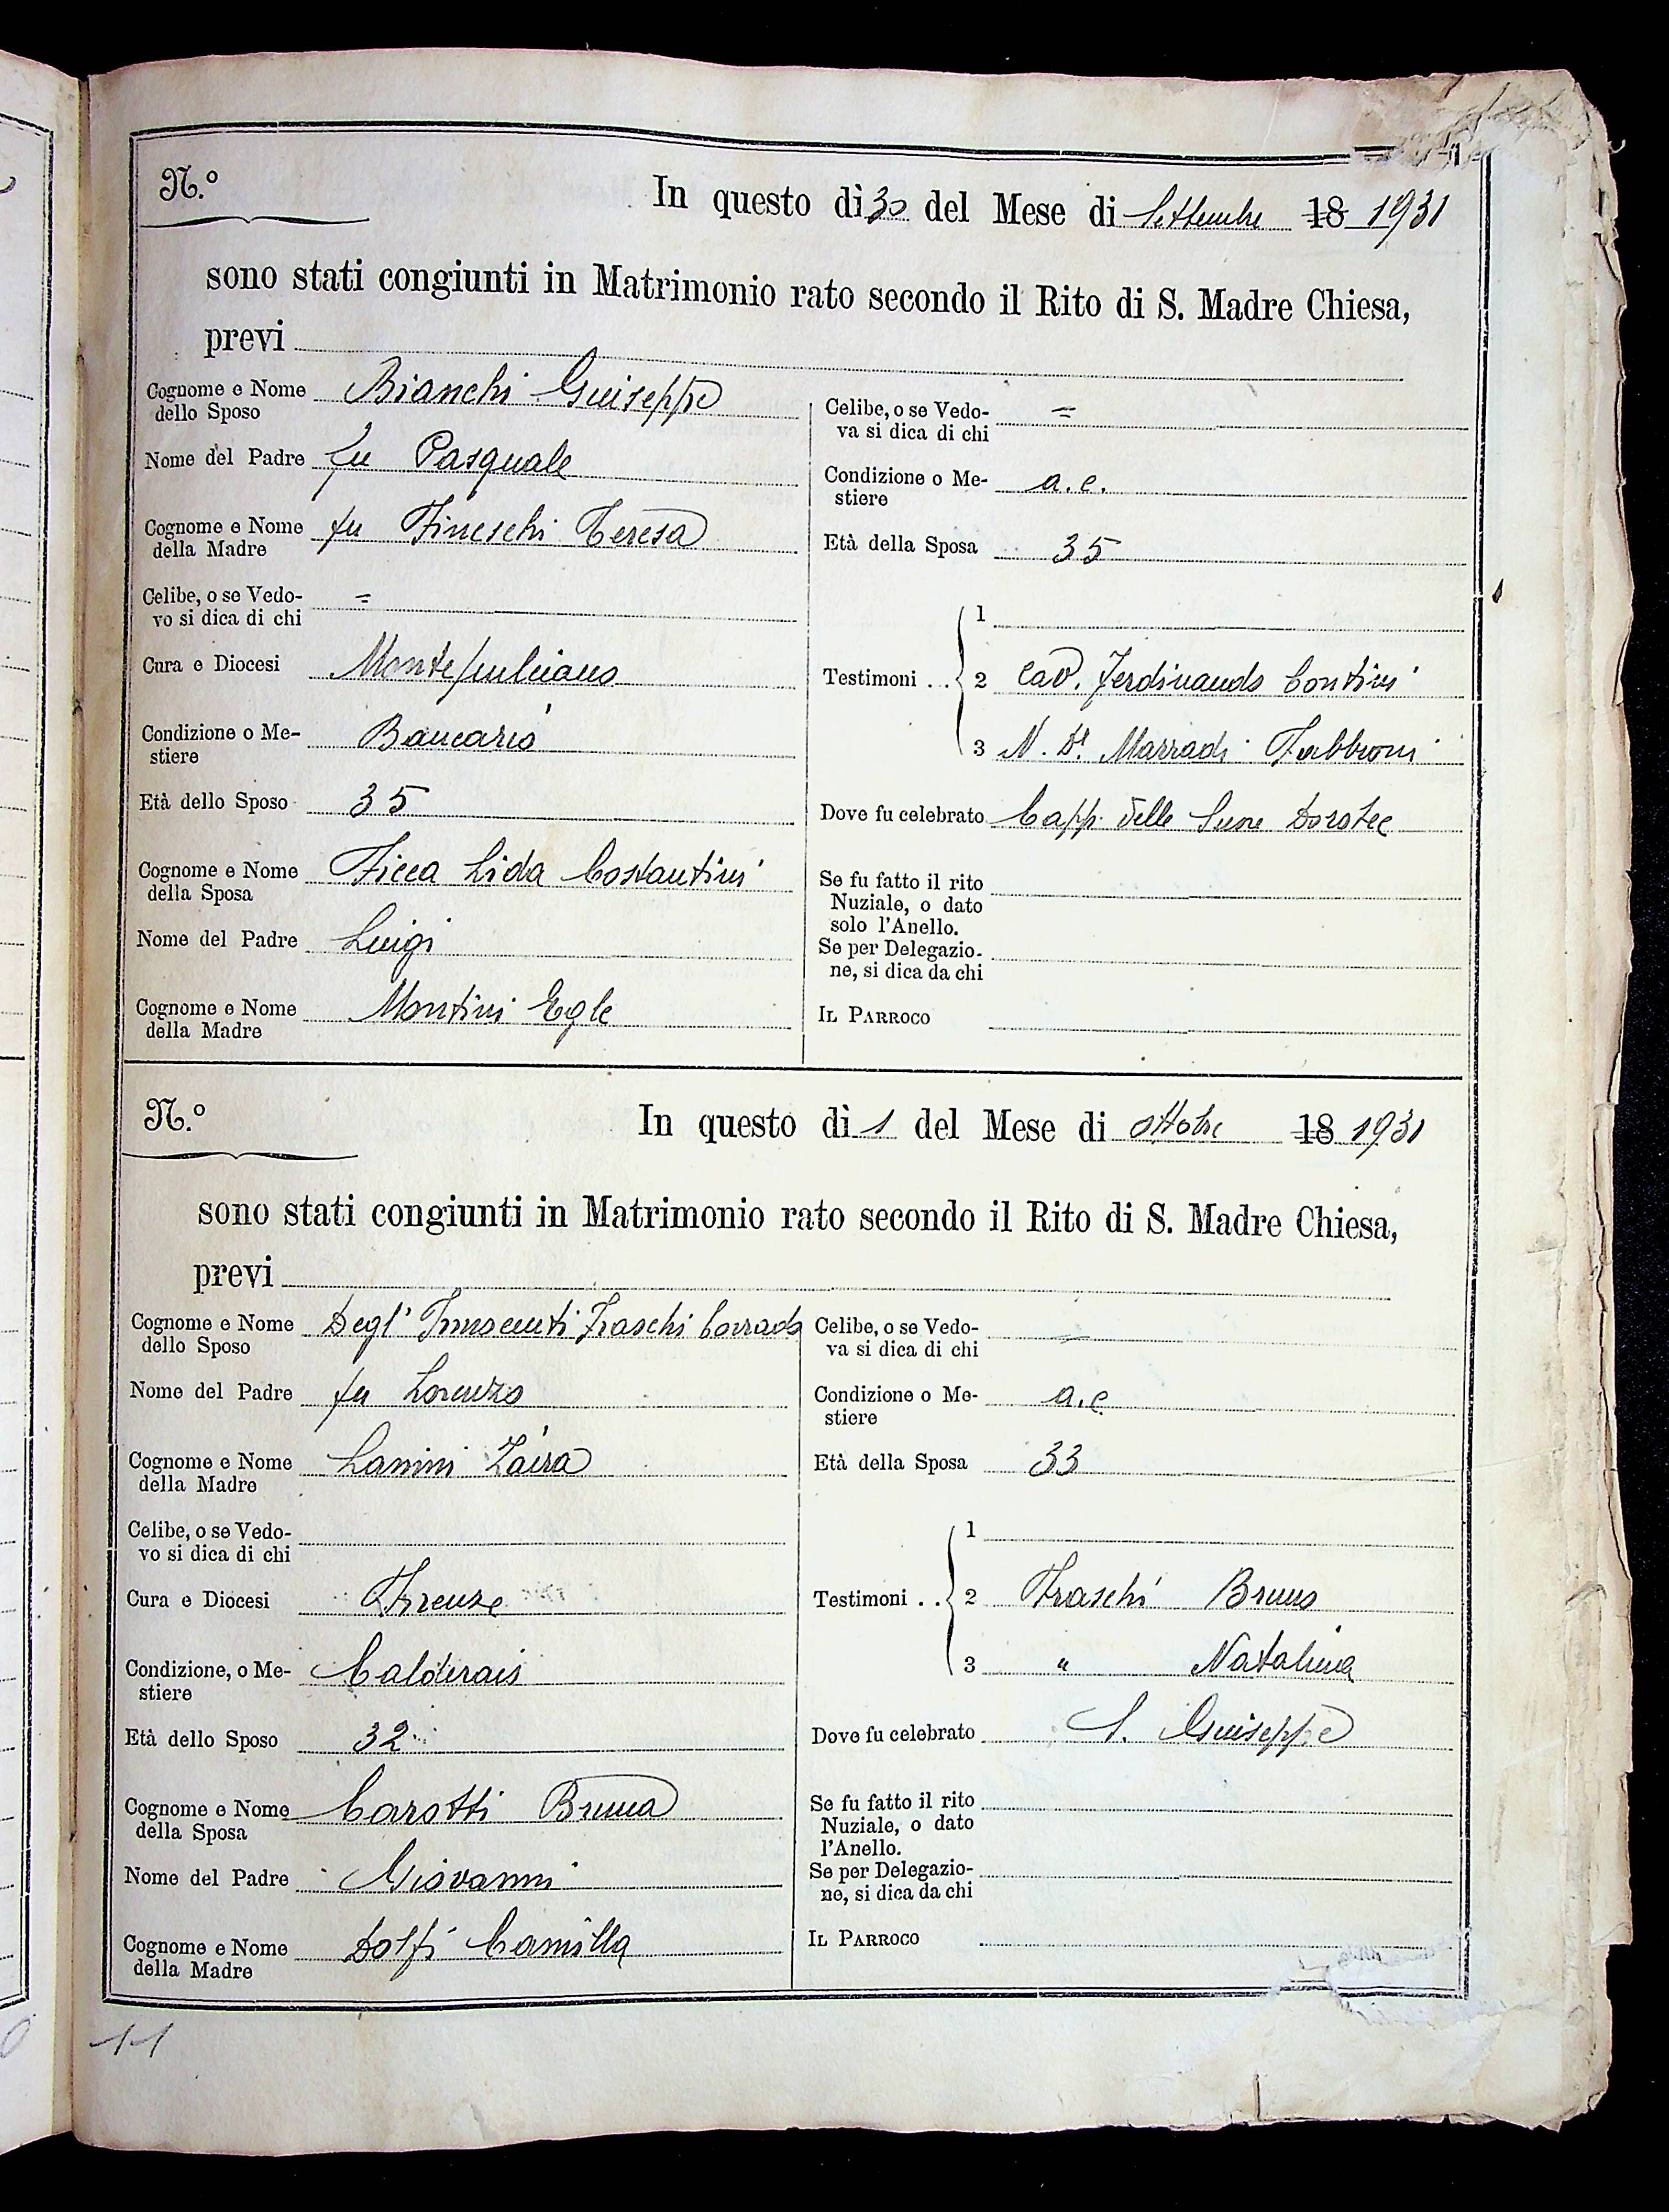 N.º
In questo dì 30 del Mese di Settembre 18 1931
sono stati congiunti in Matrimonio rato secondo il Rito di S. Madre Chiesa,
previ
Cognome e Nome dello Sposo Bianchi Giuseppe
Nome del Padre fu Pasquale
Cognome e Nome della Madre fu Fineschi Teresa
Celibe, o se Vedo-
vo si dica di chi =
Cura e Diocesi Montepulciano
Condizione o Me-
stiere Bancario
Età dello Sposo 35
Cognome e Nome della Sposa Ficca Lida Costantini
Nome del Padre Luigi
Cognome e Nome della Madre Montini Egle
Celibe, o se Vedo-
va si dica di chi =
Condizione o Me-
stiere a.c.
Età della Sposa 35
Testimoni . . 1
2 Cav. Ferdinando Contini
3 N. Marradi Fabbroni
Dove fu celebrato Capp. delle Suore Dorotee
Se fu fatto il rito
Nuziale, o dato
solo l'Anello.
Se per Delegazio-
ne, si dica da chi
Il Parroco
N.º
In questo dì 1 del Mese di ottobre 18 1931
sono stati congiunti in Matrimonio rato secondo il Rito di S. Madre Chiesa,
previ
Cognome e Nome dello Sposo Degl' Innocenti Fraschi Corrado
Nome del Padre fu Lorenzo
Cognome e Nome della Madre Lanini Zaira
Celibe, o se Vedo-
vo si dica di chi
Cura e Diocesi Firenze
Condizione, o Me-
stiere Calderaio
Età dello Sposo 32
Cognome e Nome della Sposa Carotti Bruna
Nome del Padre Giovanni
Cognome e Nome della Madre Dolfi Camilla
Celibe, o se Vedo-
va si dica di chi =
Condizione o Me-
stiere a.c
Età della Sposa 33
Testimoni . . 1
2 Fraschi Bruno
3 " Natalina
Dove fu celebrato S. Giuseppe
Se fu fatto il rito
Nuziale, o dato
l'Anello.
Se per Delegazio-
ne, si dica da chi
Il Parroco
11